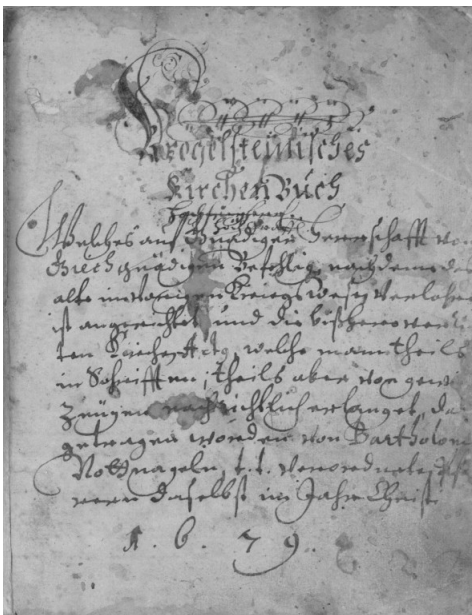 Krögelsteinisches
Kirchen Buch
Welches auf Gnädiger Herrschafft vo
gnädigen Befehlig, nachdem das
alte im Kriegswesen Verlohren
ist angerichtet und die bißhero
ten Kirchen Acta, welche mann theils
in Schrifften, theils aber von gewi
Zeugen nachrichtlich erlanget, da
getragen worden von Bartholom
Nottnageln, t. t. verordneten Pfar
rern daselbst im Jahr Christi
1 . 6 . 7 9 .